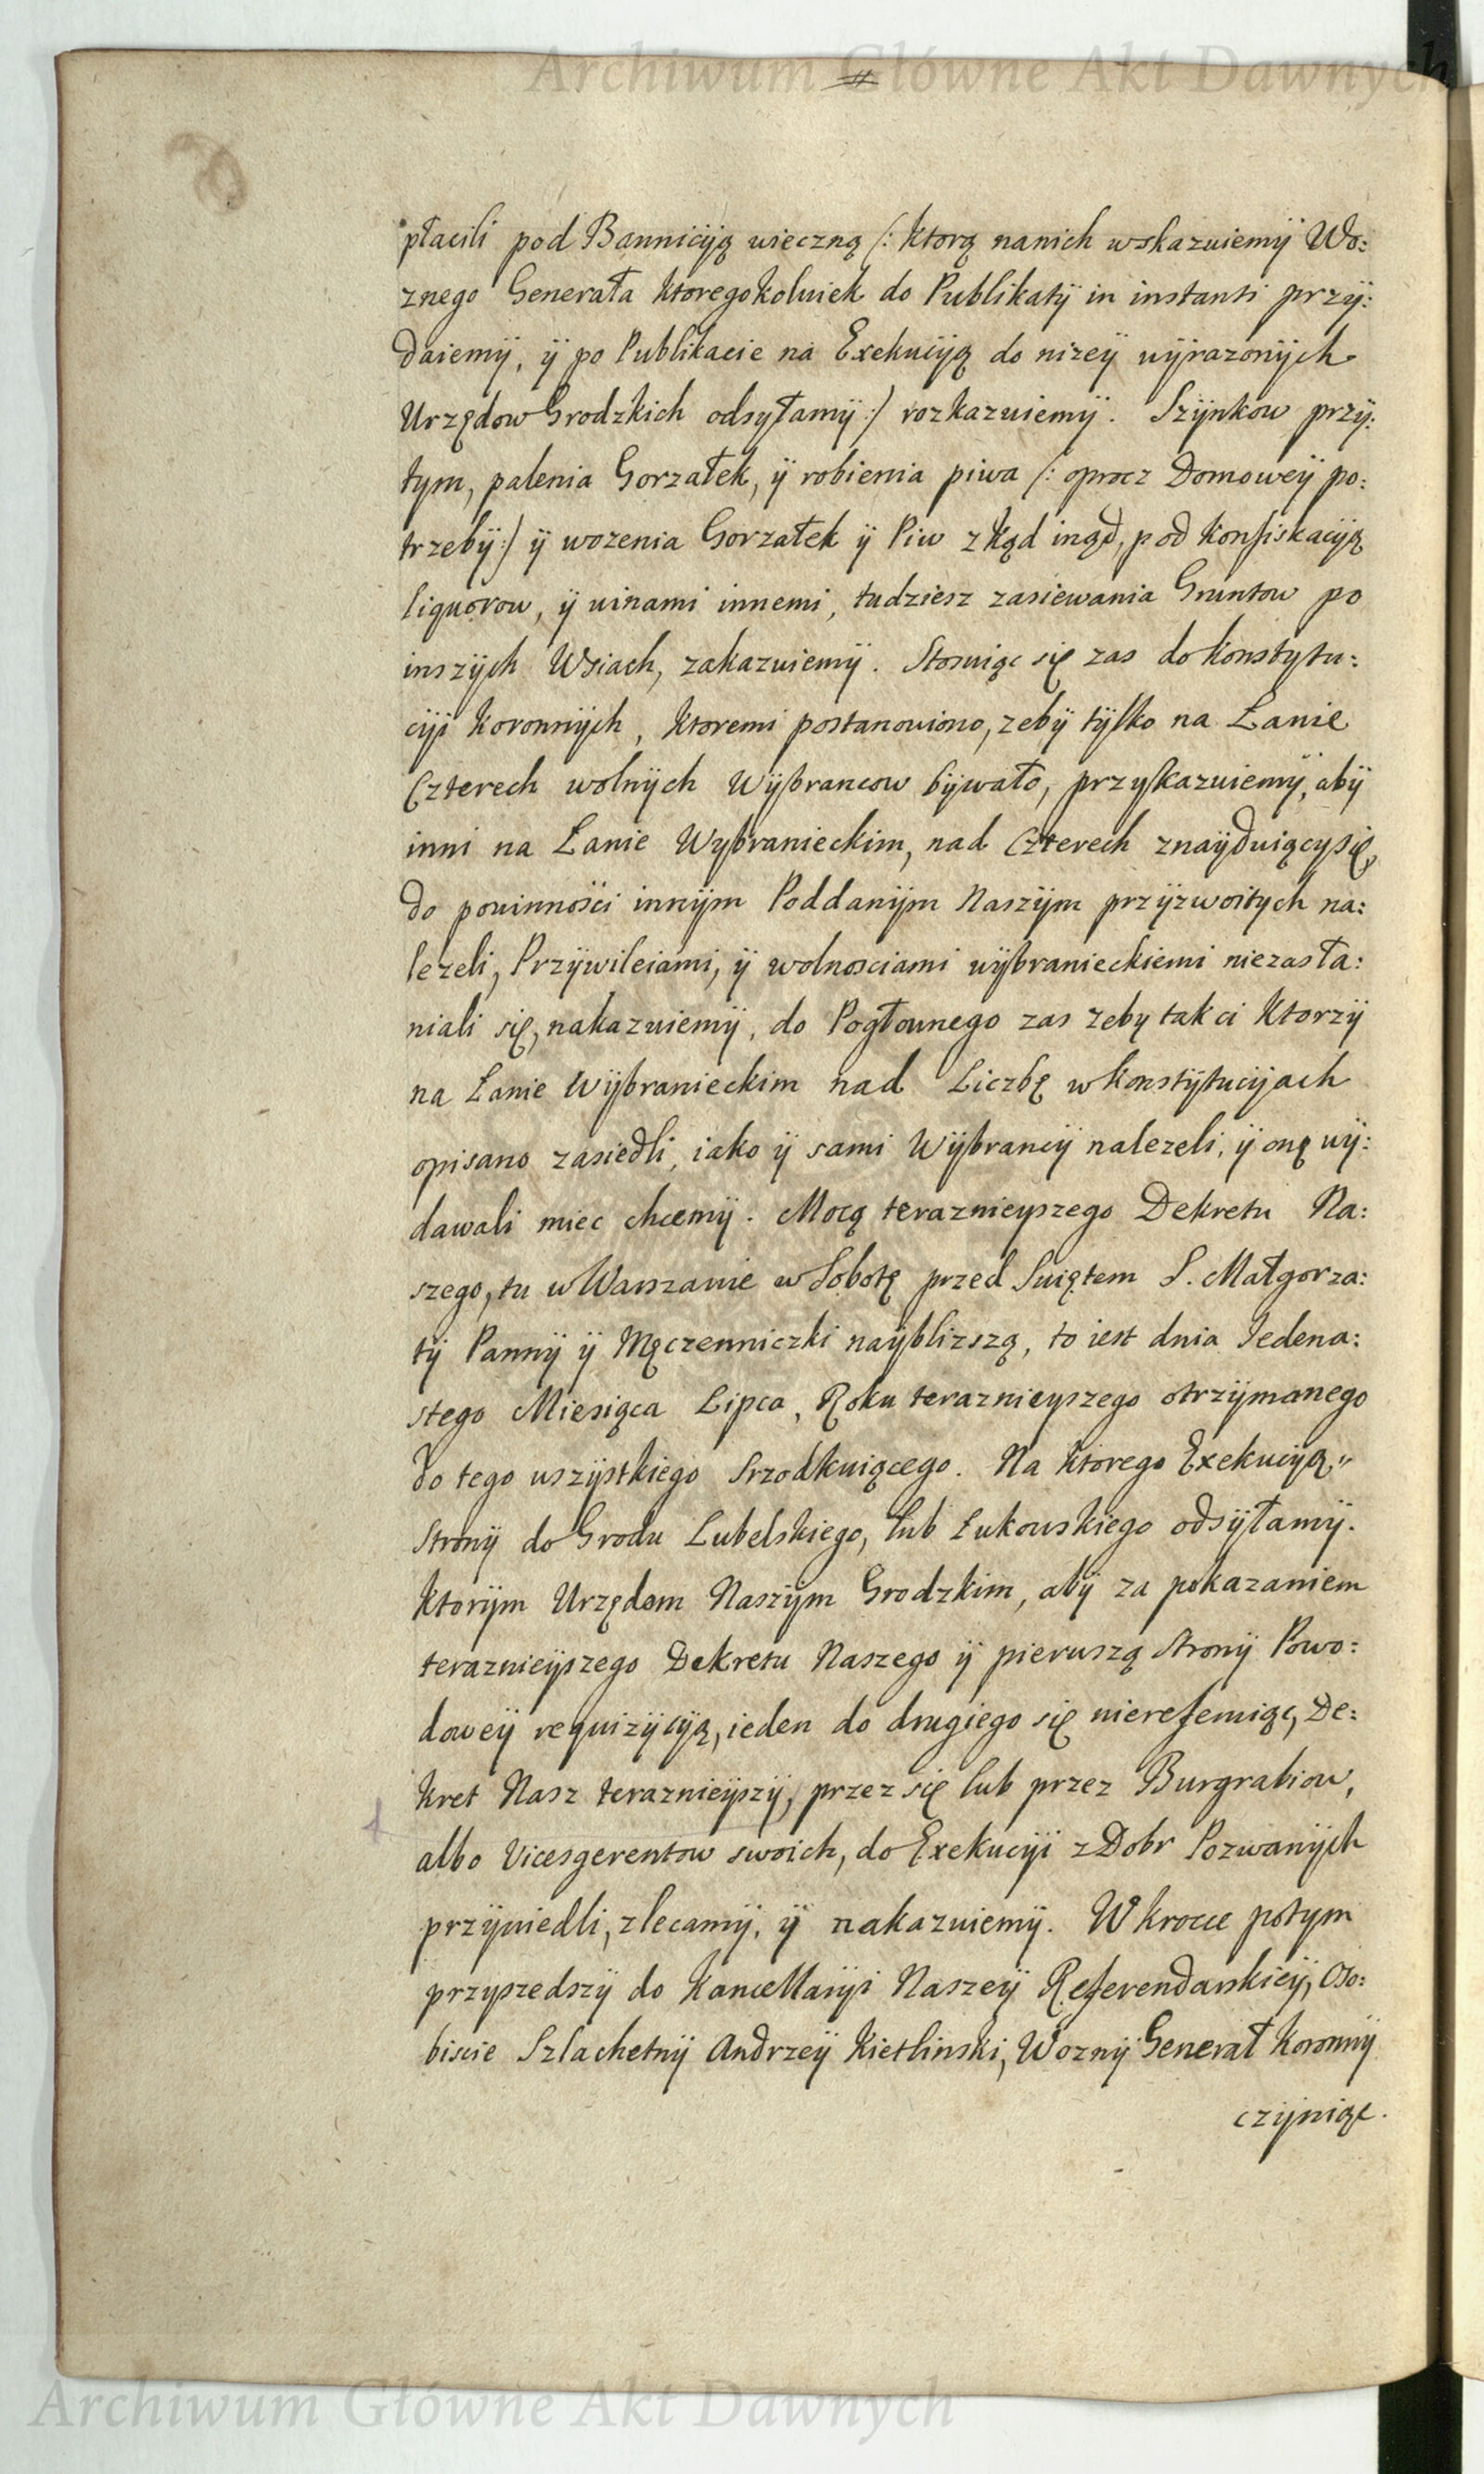 Archiwum Główne Akt Dawnych
płacili pod Banniciją wieczną (: ktorą nanich wskazuiemÿ Wo:
znego Generała ktoregokolwiek do Publikatÿ in instanti przÿ:
daiemÿ, ÿ po Publikacie na Exekuciją do nizeÿ wÿrazonÿch
Urzędow Grodzkich odsyłamÿ :) rozkazuiemÿ. Szÿnkow przÿ:
tym, palenia Gorzałek, ÿ robienia piwa (: oprocz Domoweÿ po:
trzebÿ :) ÿ wozenia Gorzałek ÿ Piw zkąd inąd, pod konfiskaciją
liquorow, ÿ winami innemi, tudziesz zasiewania Gruntow po
inszÿch Wsiach, zakazuiemÿ. Stosuiąc się zas do konstytu:
cÿi koronnÿch, ktoremi postanowiono, zebÿ tÿlko na Łanie
Czterech wolnÿch Wÿbrancow bÿwało, przykazuiemÿ, abÿ
inni na Łanie Wybranieckim, nad Czterech znaÿduiącysię,
do powinnosci innÿm Poddanÿm Naszÿm przÿzwoitych na:
lezeli, Przÿwileiami, ÿ wolnosciami wÿbranieckiemi niezasła:
niali się, nakazuiemÿ, do Pogłownego zas zeby tak ci ktorzÿ
na Łanie Wÿbranieckim nad Liczbę w konstÿtucÿach
opisano zasiedli, iako ÿ sami Wÿbrancÿ nalezeli, ÿ onę wÿ:
dawali miec chcemÿ. Mocą teraznieyszego Dekretu Na:
szego, tu w Warszawie w Sobotę przed Swiętem S. Małgorza:
tÿ Pannÿ ÿ Męczenniczki naÿblizszą, to iest dnia Iedena:
stego Miesiąca Lipca, Roku teraznieyszego otrzÿmanego
do tego wszÿstkiego srzodkuiącego. Na ktorego Exekuciją"
Stronÿ do Grodu Lubelskiego, lub Łukowskiego odsÿłamÿ.
ktorÿm Urzędom Naszÿm Grodzkim, abÿ za pokazaniem
teraznieÿszego Dekretu Naszego ÿ pierwszą Stronÿ Powo:
doweÿ requizÿcÿą, ieden do drugiego się nierefemiąc, De:
kret Nasz teraznieÿszÿ, przez się lub przez Burgrabiow,
albo Vicesgerentow swoich, do Exekucÿi z Dobr Pozwanÿch
przÿwiedli, zlecamÿ, ÿ nakazuiemÿ. W krocce potym
przyszedszÿ do kancellarÿi Naszeÿ Referendarskieÿ, Oso:
biscie Szlachetnÿ Andrzeÿ Kietlinski, Woznÿ Generał koronnÿ
czÿniąc.
Archiwum Główne Akt Dawnych